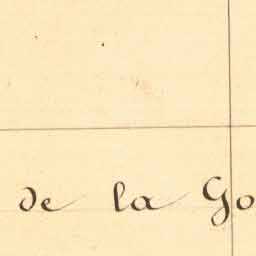 de la Go